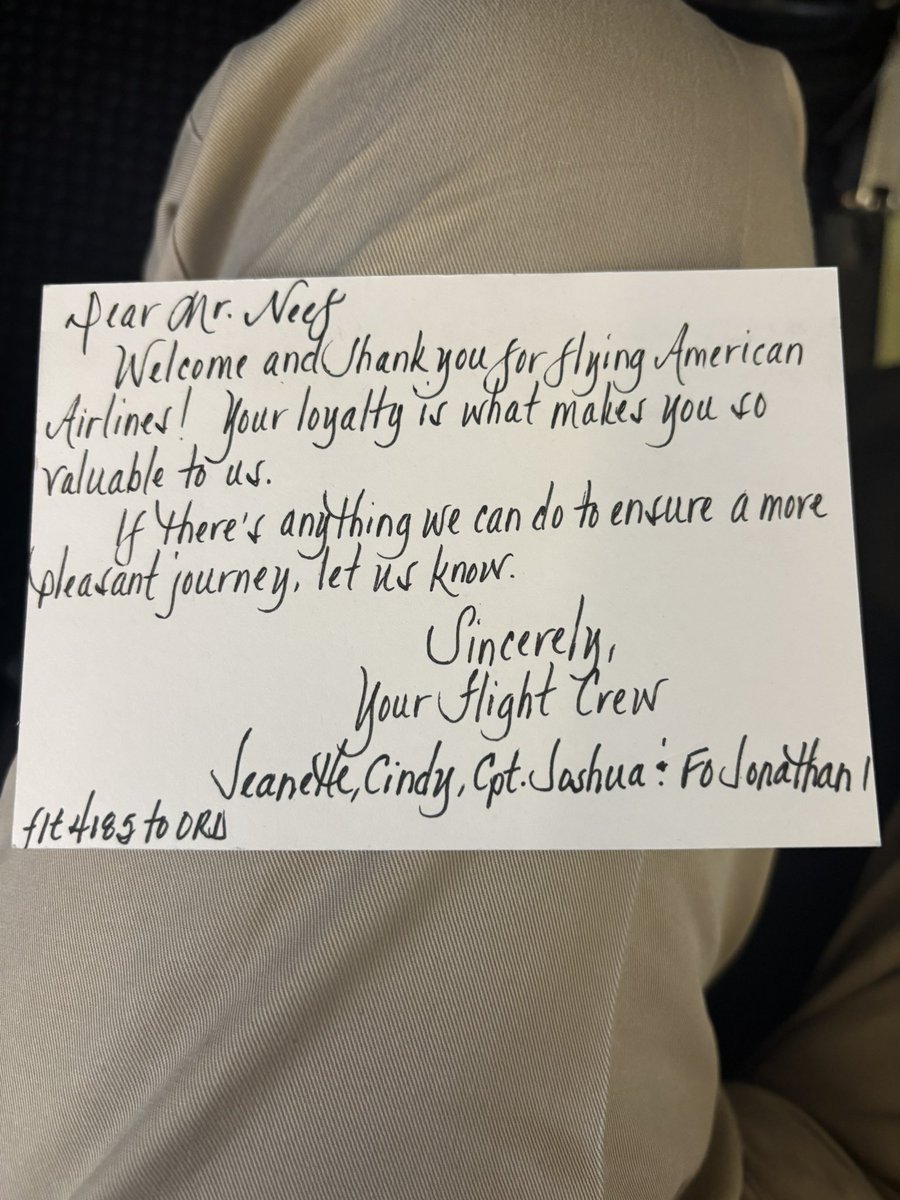 Dear Mr. Neef
Welcome and thank you for flying American
Airlines! Your loyalty is what makes you so
valuable to us.
If there's anything we can do to ensure a more
pleasant journey, let us know.
Sincerely,
Your flight Crew
Jeanette, Cindy, Cpt. Joshua & FO Jonathan
flt 4185 to ORD